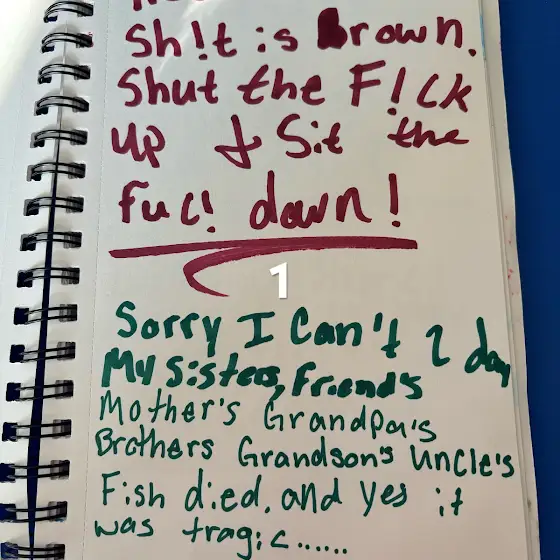 Sh!t is Brown.
Shut the F!ck
up & Sit the
fuc! down!
1
Sorry I Can't 2 day
My Sisters, Friends
Mother's Grandpa's
Brothers Grandson's Uncle's
Fish died, and yes it
was tragic......